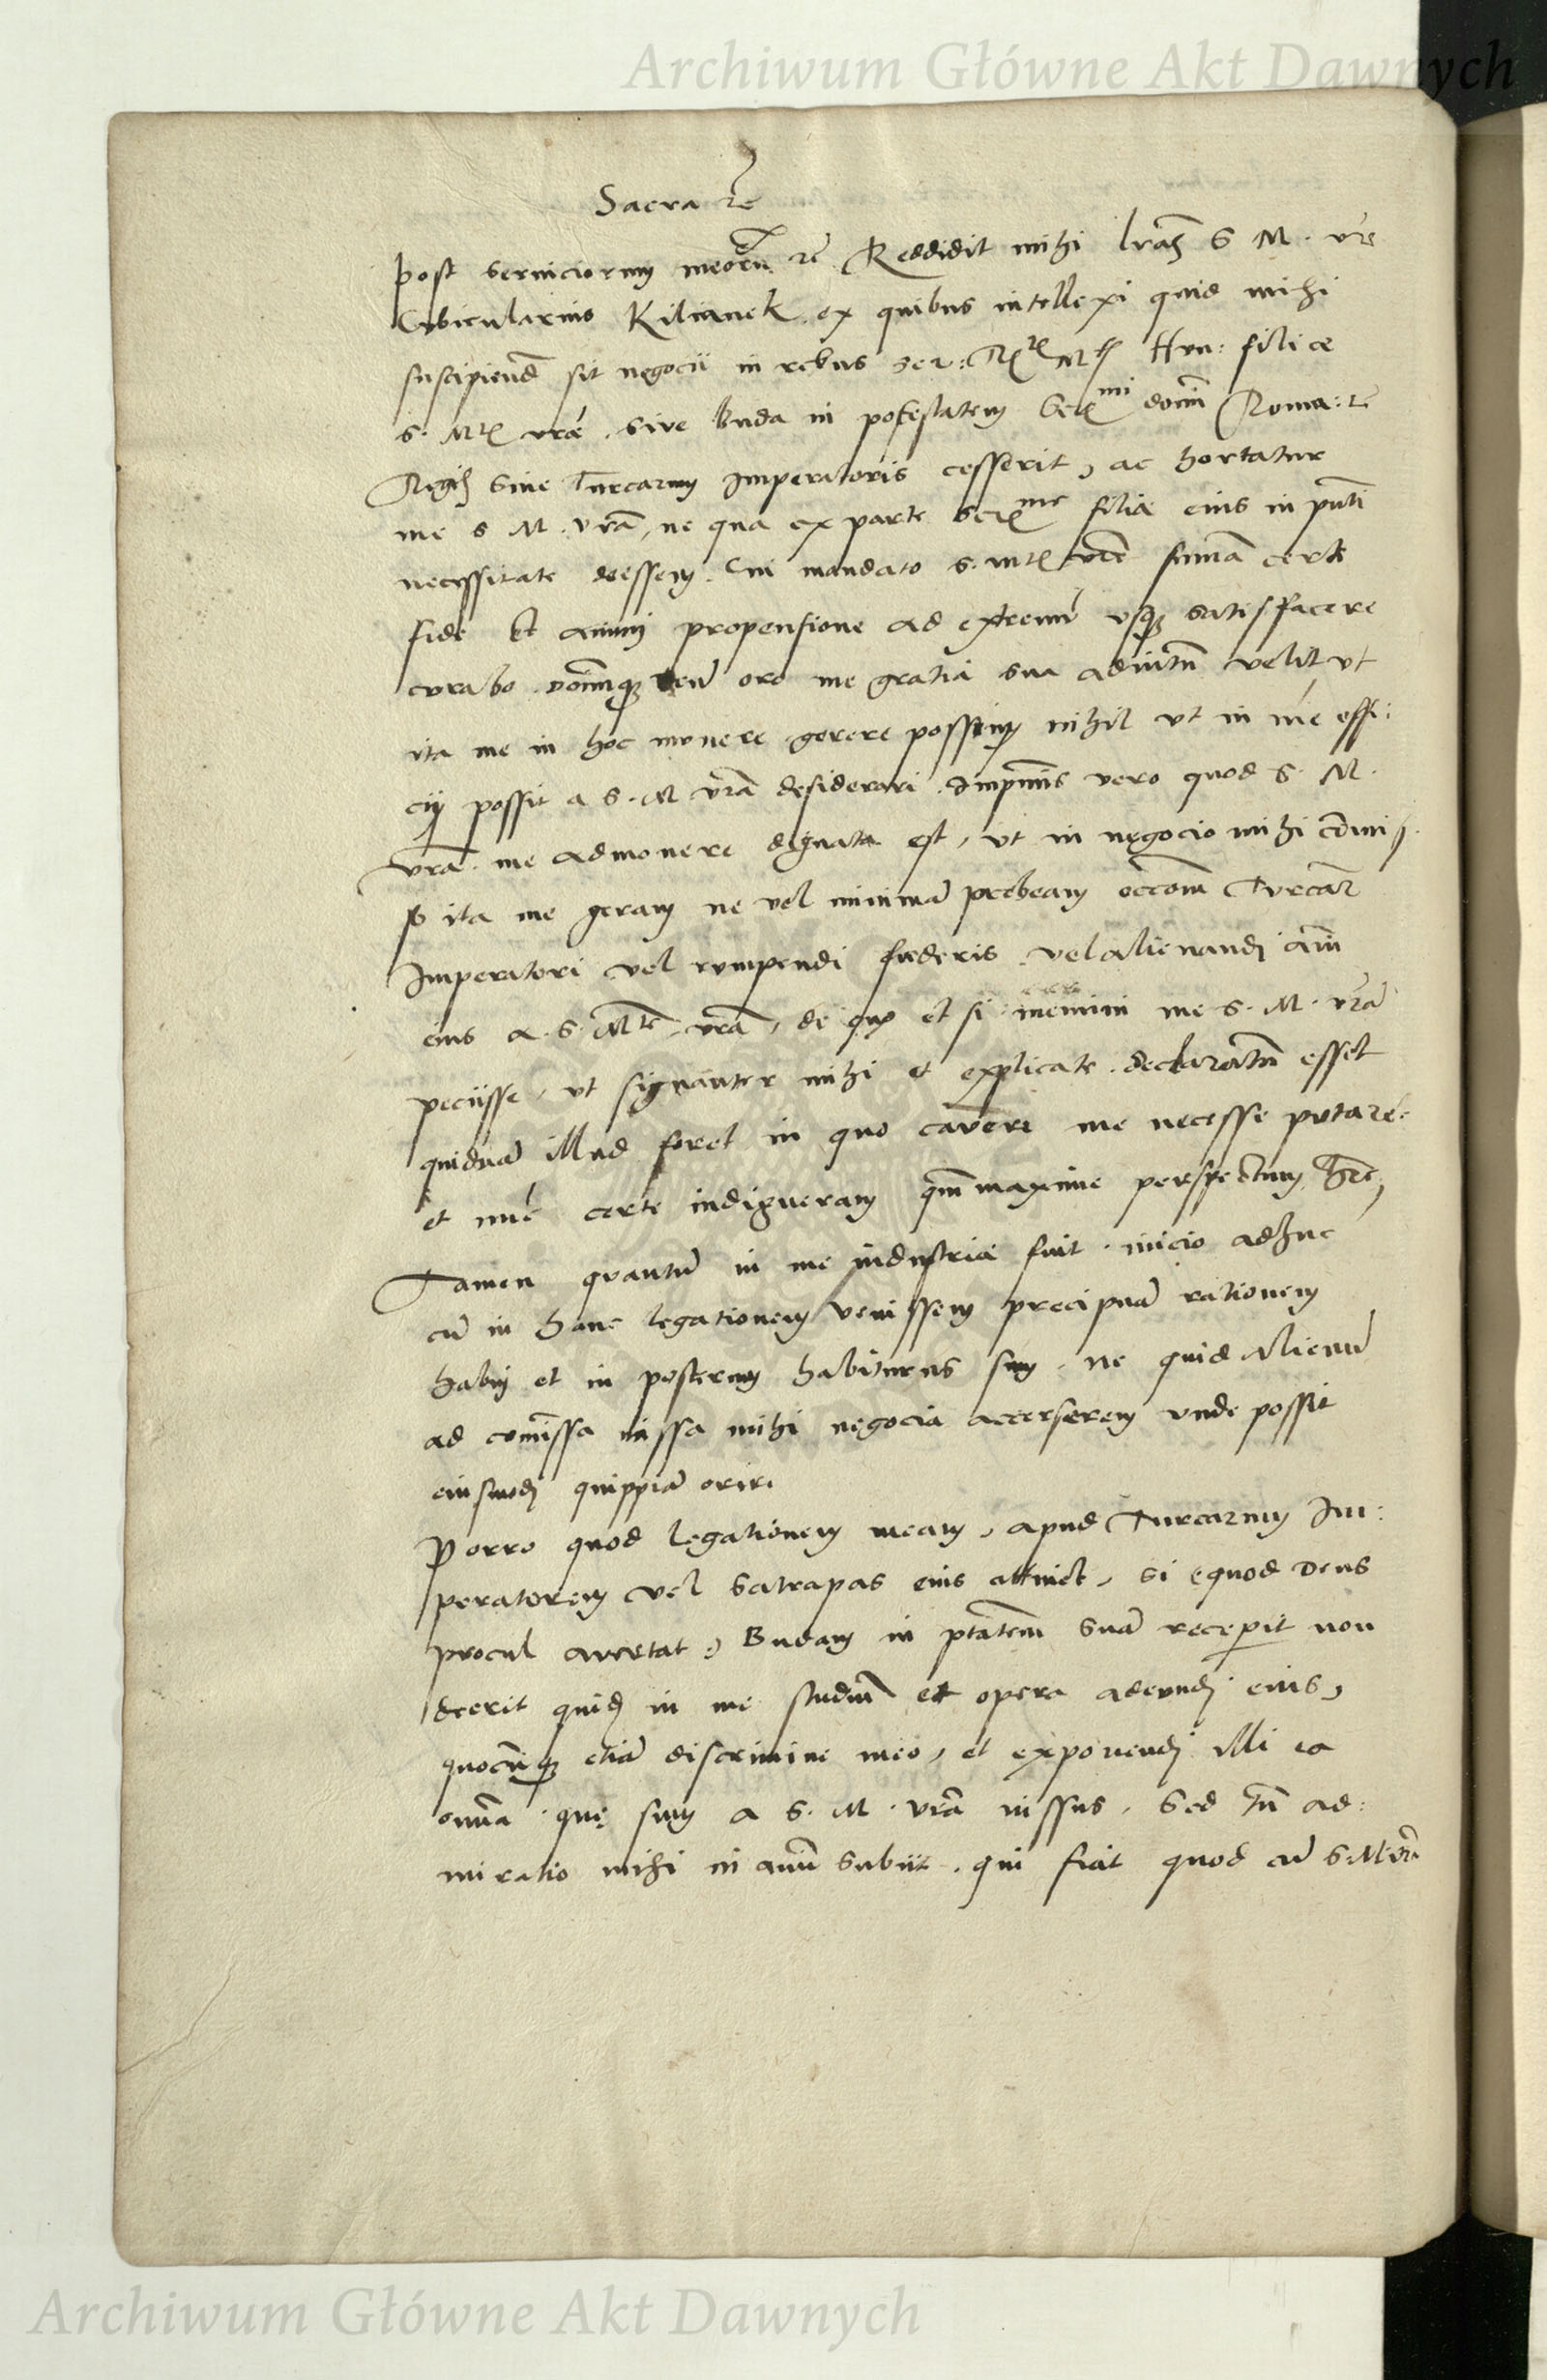 Archiwum Główne Akt Dawnych
Sacra rē
Post serviciorum meorū rē Reddidit mihi lrās S M. vrē
Cubicularius Kilianek ex quibus intellexi quid mihi
suscipiend sit negocii in rebus Ser: Mtis Hun: filiæ
S. Mtis vrāe, sive Buda in potestatem Sermi domi Roma: rē
Regis sive Turcarum Imperatoris cesserit, ac hortatur
me S M. vrā, ne qua ex parte Serme filiæ eius in pnti
necessitate deessem. Cui mandato S. Mtis vrē summa certe
fide et animi propensione ad extremū usq satisfacere
curabo dominūq deū oro me gratia sua adiutū velit ut
ita me in hoc munere gerere possim nihil ut in me effi:
cy possit a S. M vrā desiderari. Inprimis vero quod S. M.
vrā me admonere dignata est, ut in negocio mihi cōmis
so ita me geram ne vel minimā prebeam occom Turcar
Imperatori vel rumpendi fœderis vel alienandi aim
eius a S. Mte vrā, de quo et si memini me S. M. vrā
peciisse, ut signanter mihi et explicate declaratū esset
quidnā illud foret in quo cavere me necesse putare:
et nūc certe indigueram qm maxime perspectum hre,
Tamen quantū in me industriæ fuit inicio adhuc
cū in hanc legationem venissem precipuā rationem
habui et in posterum habiturus sum, ne quid alienū
ad comissa missa mihi negocia accerserem unde possit
eiusmodi quippiā oriri
Porro quod legationem meam, apud Turcarum Im:
peratorem vel Satrapas eius attinet, si equod Deus
procul avertat, Budam in ptatem suā receperit non
deerit quid in me studiū et opera adeundi eius,
quocunq etiā discrimine meo, et exponendi illi ea
omnia que sum a S. M. vrā iussus. Sed tū ad:
miratio mihi in aiū subiit, qui fiat quod cū S. M. vrā
Archiwum Główne Akt Dawnych